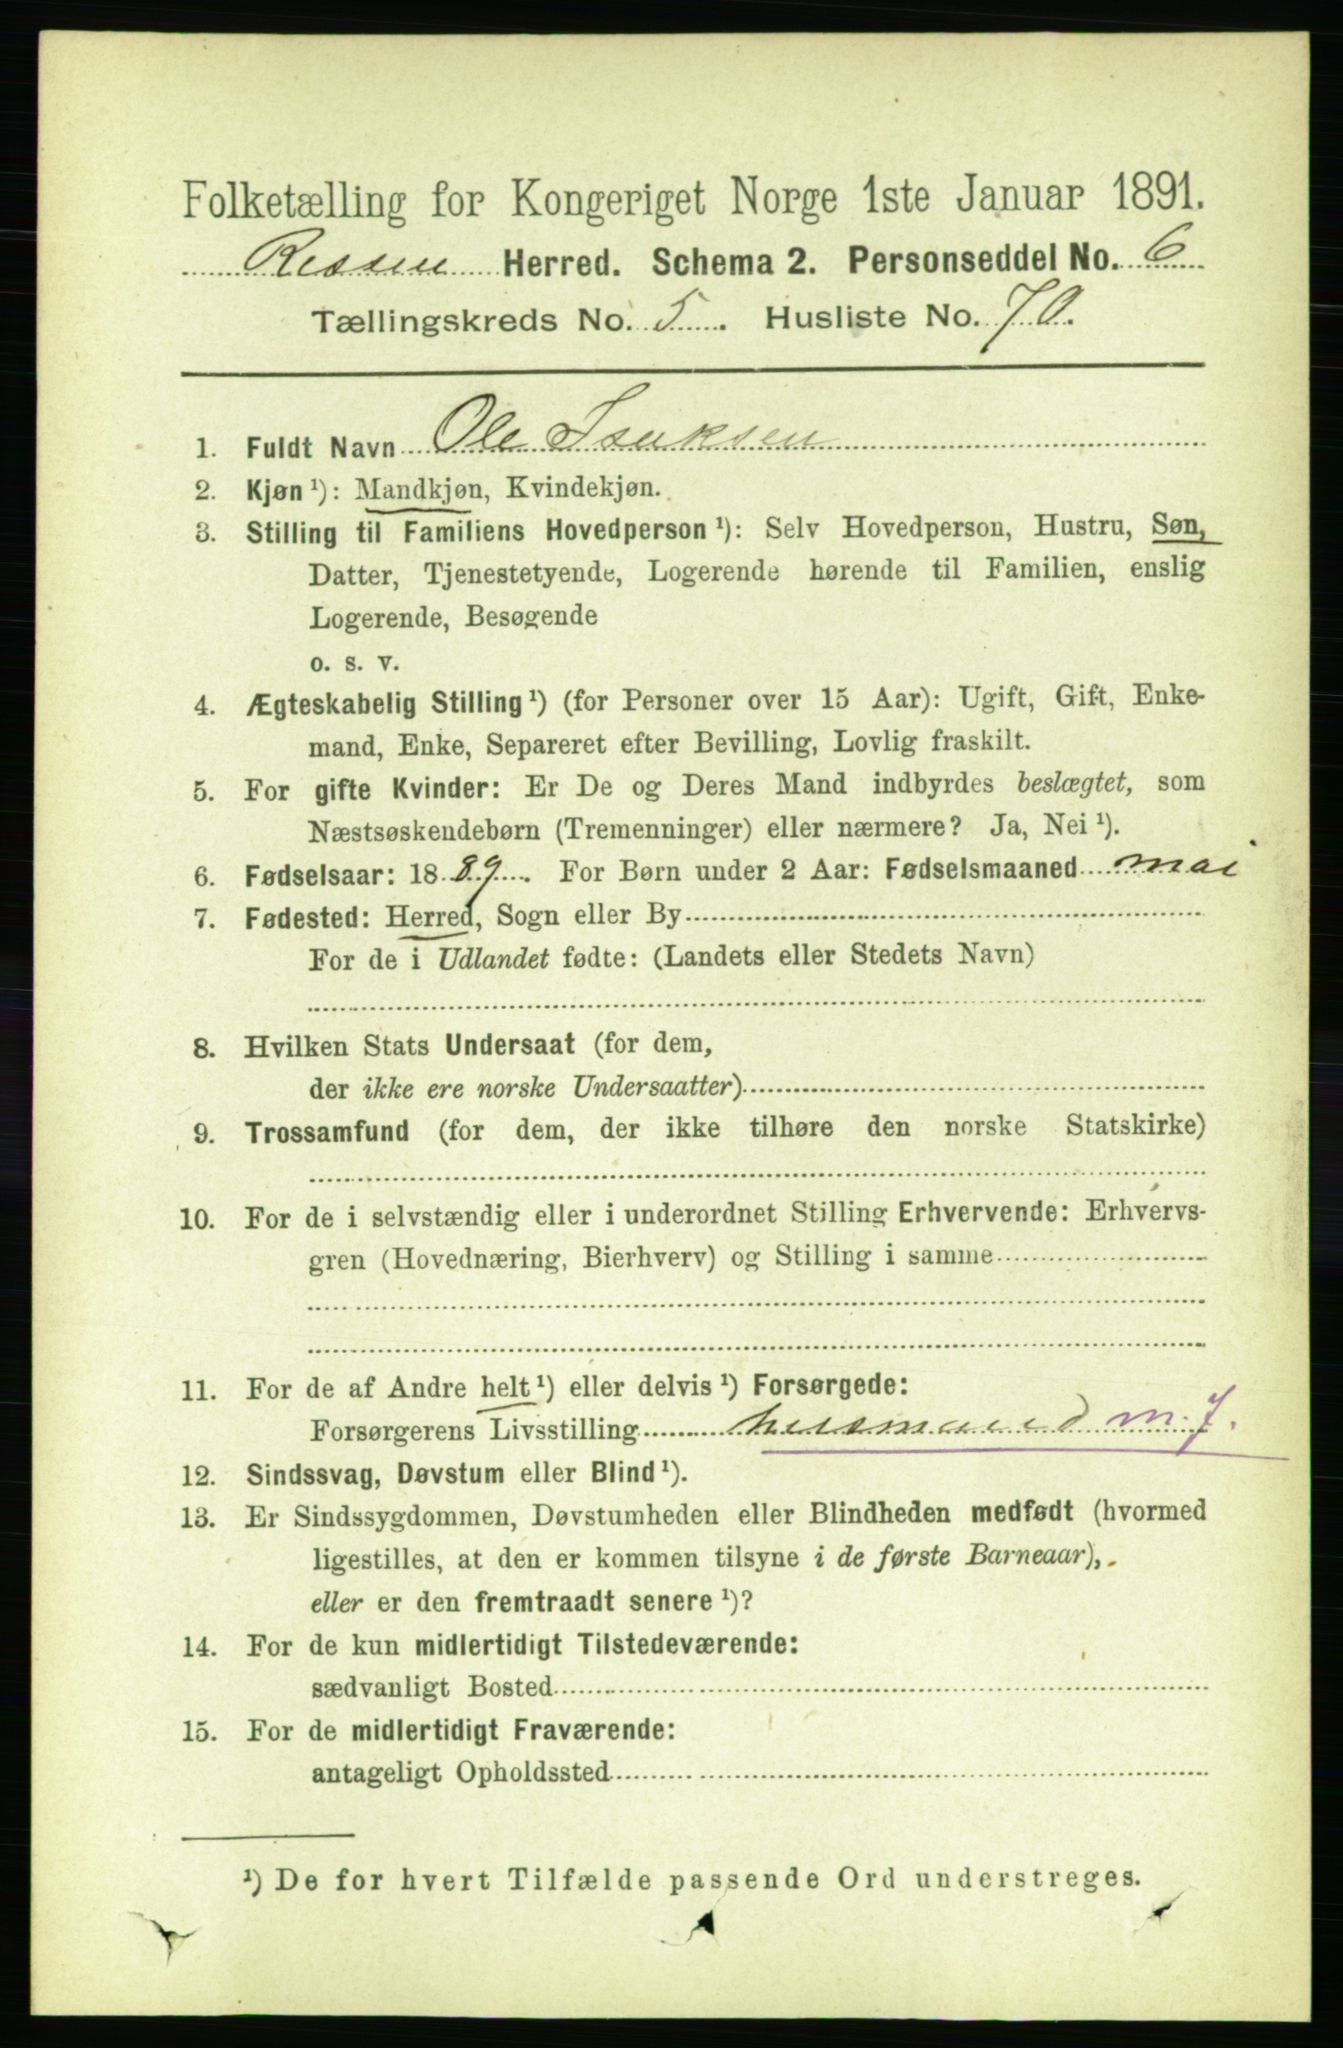 Folketælling for Kongeriget Norge 1ste Januar 1891.
Rissen Herred. Schema 2. Personseddel No. 6
Tællingskreds No. 5. Husliste No. 70.
1. Fuldt Navn Ole Isaksen
2. Kjøn ¹): Mandkjøn, Kvindekjøn.
3. Stilling til Familiens Hovedperson ¹): Selv Hovedperson, Hustru, Søn,
Datter, Tjenestetyende, Logerende hørende til Familien, enslig
Logerende, Besøgende
o. s. v.
4. Ægteskabelig Stilling ¹) (for Personer over 15 Aar): Ugift, Gift, Enke-
mand, Enke, Separeret efter Bevilling, Lovlig fraskilt.
5. For gifte Kvinder: Er De og Deres Mand indbyrdes beslægtet, som
Næstsøskendebørn (Tremenninger) eller nærmere? Ja, Nei ¹).
6. Fødselsaar: 1889. For Børn under 2 Aar: Fødselsmaaned mai
7. Fødested: Herred, Sogn eller By
For de i Udlandet fødte: (Landets eller Stedets Navn)
8. Hvilken Stats Undersaat (for dem,
der ikke ere norske Undersaatter)
9. Trossamfund (for dem, der ikke tilhøre den norske Statskirke)
10. For de i selvstændig eller i underordnet Stilling Erhvervende: Erhvervs-
gren (Hovednæring, Bierhverv) og Stilling i samme
11. For de af Andre helt ¹) eller delvis ¹) Forsørgede:
Forsørgerens Livsstilling husmand m. j.
12. Sindssvag, Døvstum eller Blind ¹).
13. Er Sindssygdommen, Døvstumheden eller Blindheden medfødt (hvormed
ligestilles, at den er kommen tilsyne i de første Barneaar),
eller er den fremtraadt senere ¹)?
14. For de kun midlertidigt Tilstedeværende:
sædvanligt Bosted
15. For de midlertidigt Fraværende:
antageligt Opholdssted
¹) De for hvert Tilfælde passende Ord understreges.